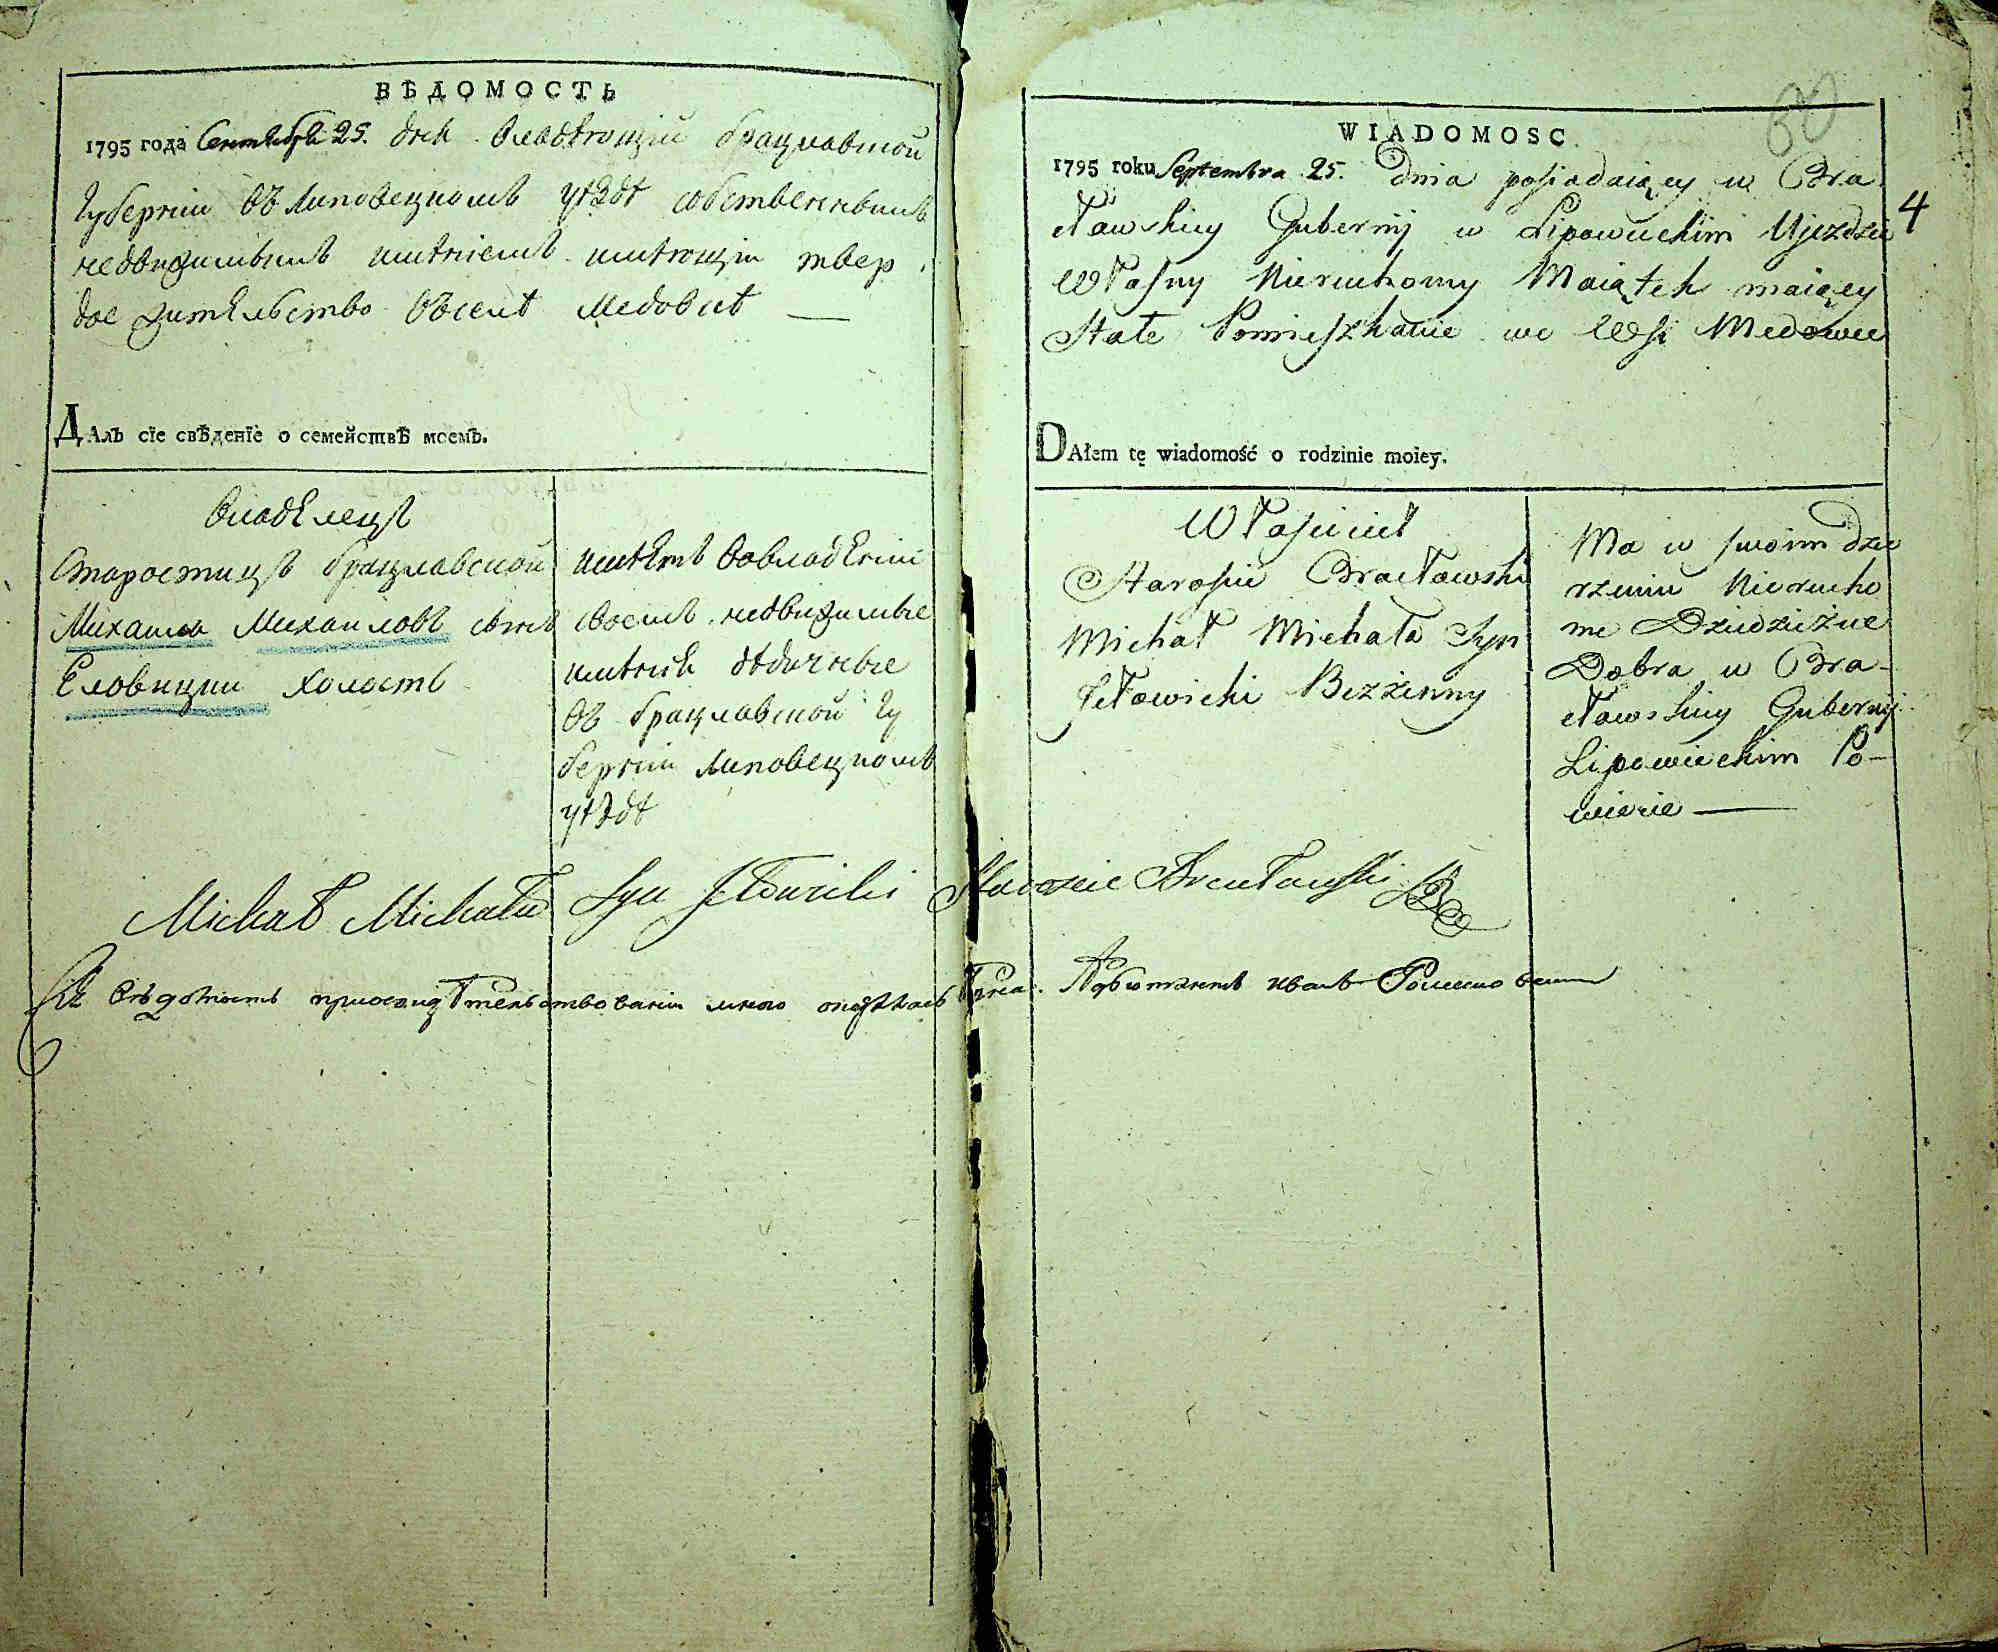 ВѢДОМОСТЬ
1795 года Сентября 25. дня владѣющій брацлавской
Губерніи въ Липовецкомъ уѣздѣ собственнымъ
недвижимымъ имѣніемъ имѣющій твер
дое жительство въ селѣ Медовкѣ —
ДАлъ сїе свѣденїе о семействѣ моемъ.
владѣлецъ
Старостицъ брацлавской
Михаилъ Михаиловъ сынъ
Еловицкии холостъ
имѣетъ во владѣніи
своемъ недвижимые
имѣния дѣдичные
въ брацлавской Гу
берніи Липовецкомъ
уѣздѣ
WIADOMOSC.
60
4
1795 roku Septembra 25. Dnia posiadaiący w Bra
cławskiey Gubernij w Lipowieckim Ujezdzie
Własny Nieruchomy Maiątek maiący
Stałe Pomieszkanie we Wsi Medowce
DAłem tę wiadomość o rodzinie moiey.
Właściciel
Starościc Bracławski
Michał Michała Syn
Jełowicki Bezżenny
Ma w swoim dzie
rzeniu Nierucho
me Dziedziczne
Dobra w Bra-
cławskiey Gubernij
Lipowieckim Po-
wiecie —
Michał Michała Syn Jełowicki Starościc Bracławski
Сія вѣдомость при освидѣтельствовании мною оказалась верна. Адъютантъ Иванъ